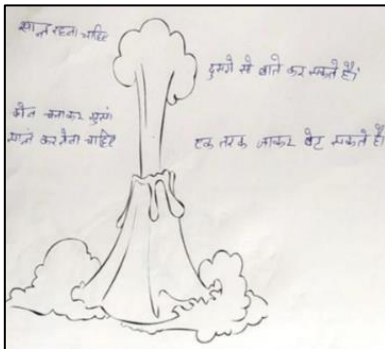 शान्त रहना चाहिए
दुसरो से बाते कर सकते हैं।
फोन चलाकर गुस्सा
शान्त कर लेना चाहिए
एक तरफ जाकर बेठ सकते हैं